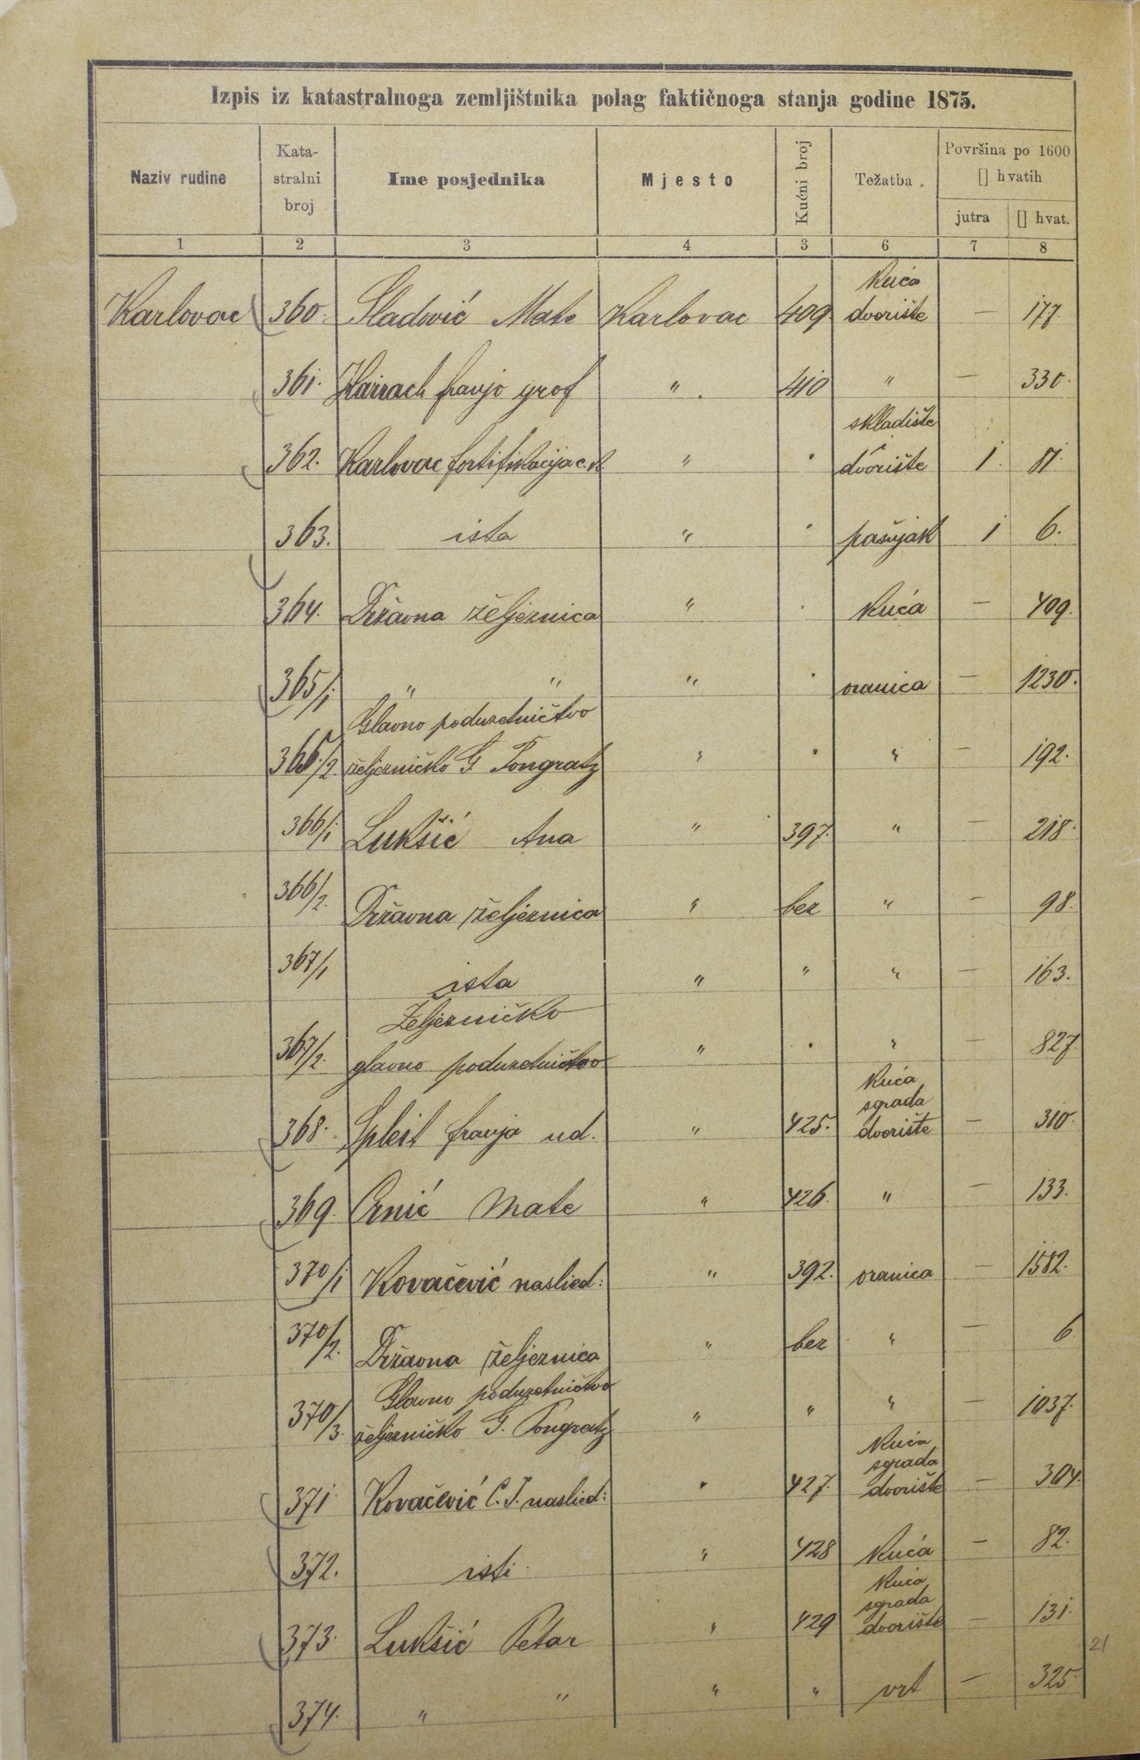 Izpis iz katastralnoga zemljištnika polag faktičnoga stanja godine 1875.
Naziv rudine Kata- stralni broj Ime posjednika Mjesto Kućni broj Težatba. Površina po 1600 [] hvatih
jutra [] hvat.
1 2 3 4 3 6 7 8
kuća
Karlovac 360. Sladović Mate Karlovac 409. dvorište — 177
361. Harrach franjo grof " 410 " — 330.
skladište
362. Karlovac fortifikacija c. k. " " dvorište 1. 81
363. ista " " pašnjak 1 6.
364. Državna željeznica " " kuća — 409.
365/1 " " " " oranica — 1230.
Glavno poduzetničtvo
365/2. željezničko G Pongratz " " " — 192.
366/1 Lukšić Ana " 397. " — 218.
366/2. Državna željeznica " bez " — 98.
367/1 ista " " " — 163.
Željezničko
367/2. glavno poduzetničtvo " " " — 827
kuća
sgrada
368. franja ud. " 425. dvorište — 310.
369. Crnić Mate " 426. " — 133.
370/1 Kovačević naslied: " 392. oranica — 1582.
370/2. Državna željeznica " bez " — 6
Glavno poduzetničtvo
370/3. željezničko G. Pongratz " " " — 1037.
kuća
sgrada
371 Kovačević C. J. naslied: " 427. dvorište — 304.
372. isti " 428 kuća — 82.
kuća
sgrada
373. Lukšić Petar " 429 dvorište — 131.
374. " " " " vrt — 325.
21